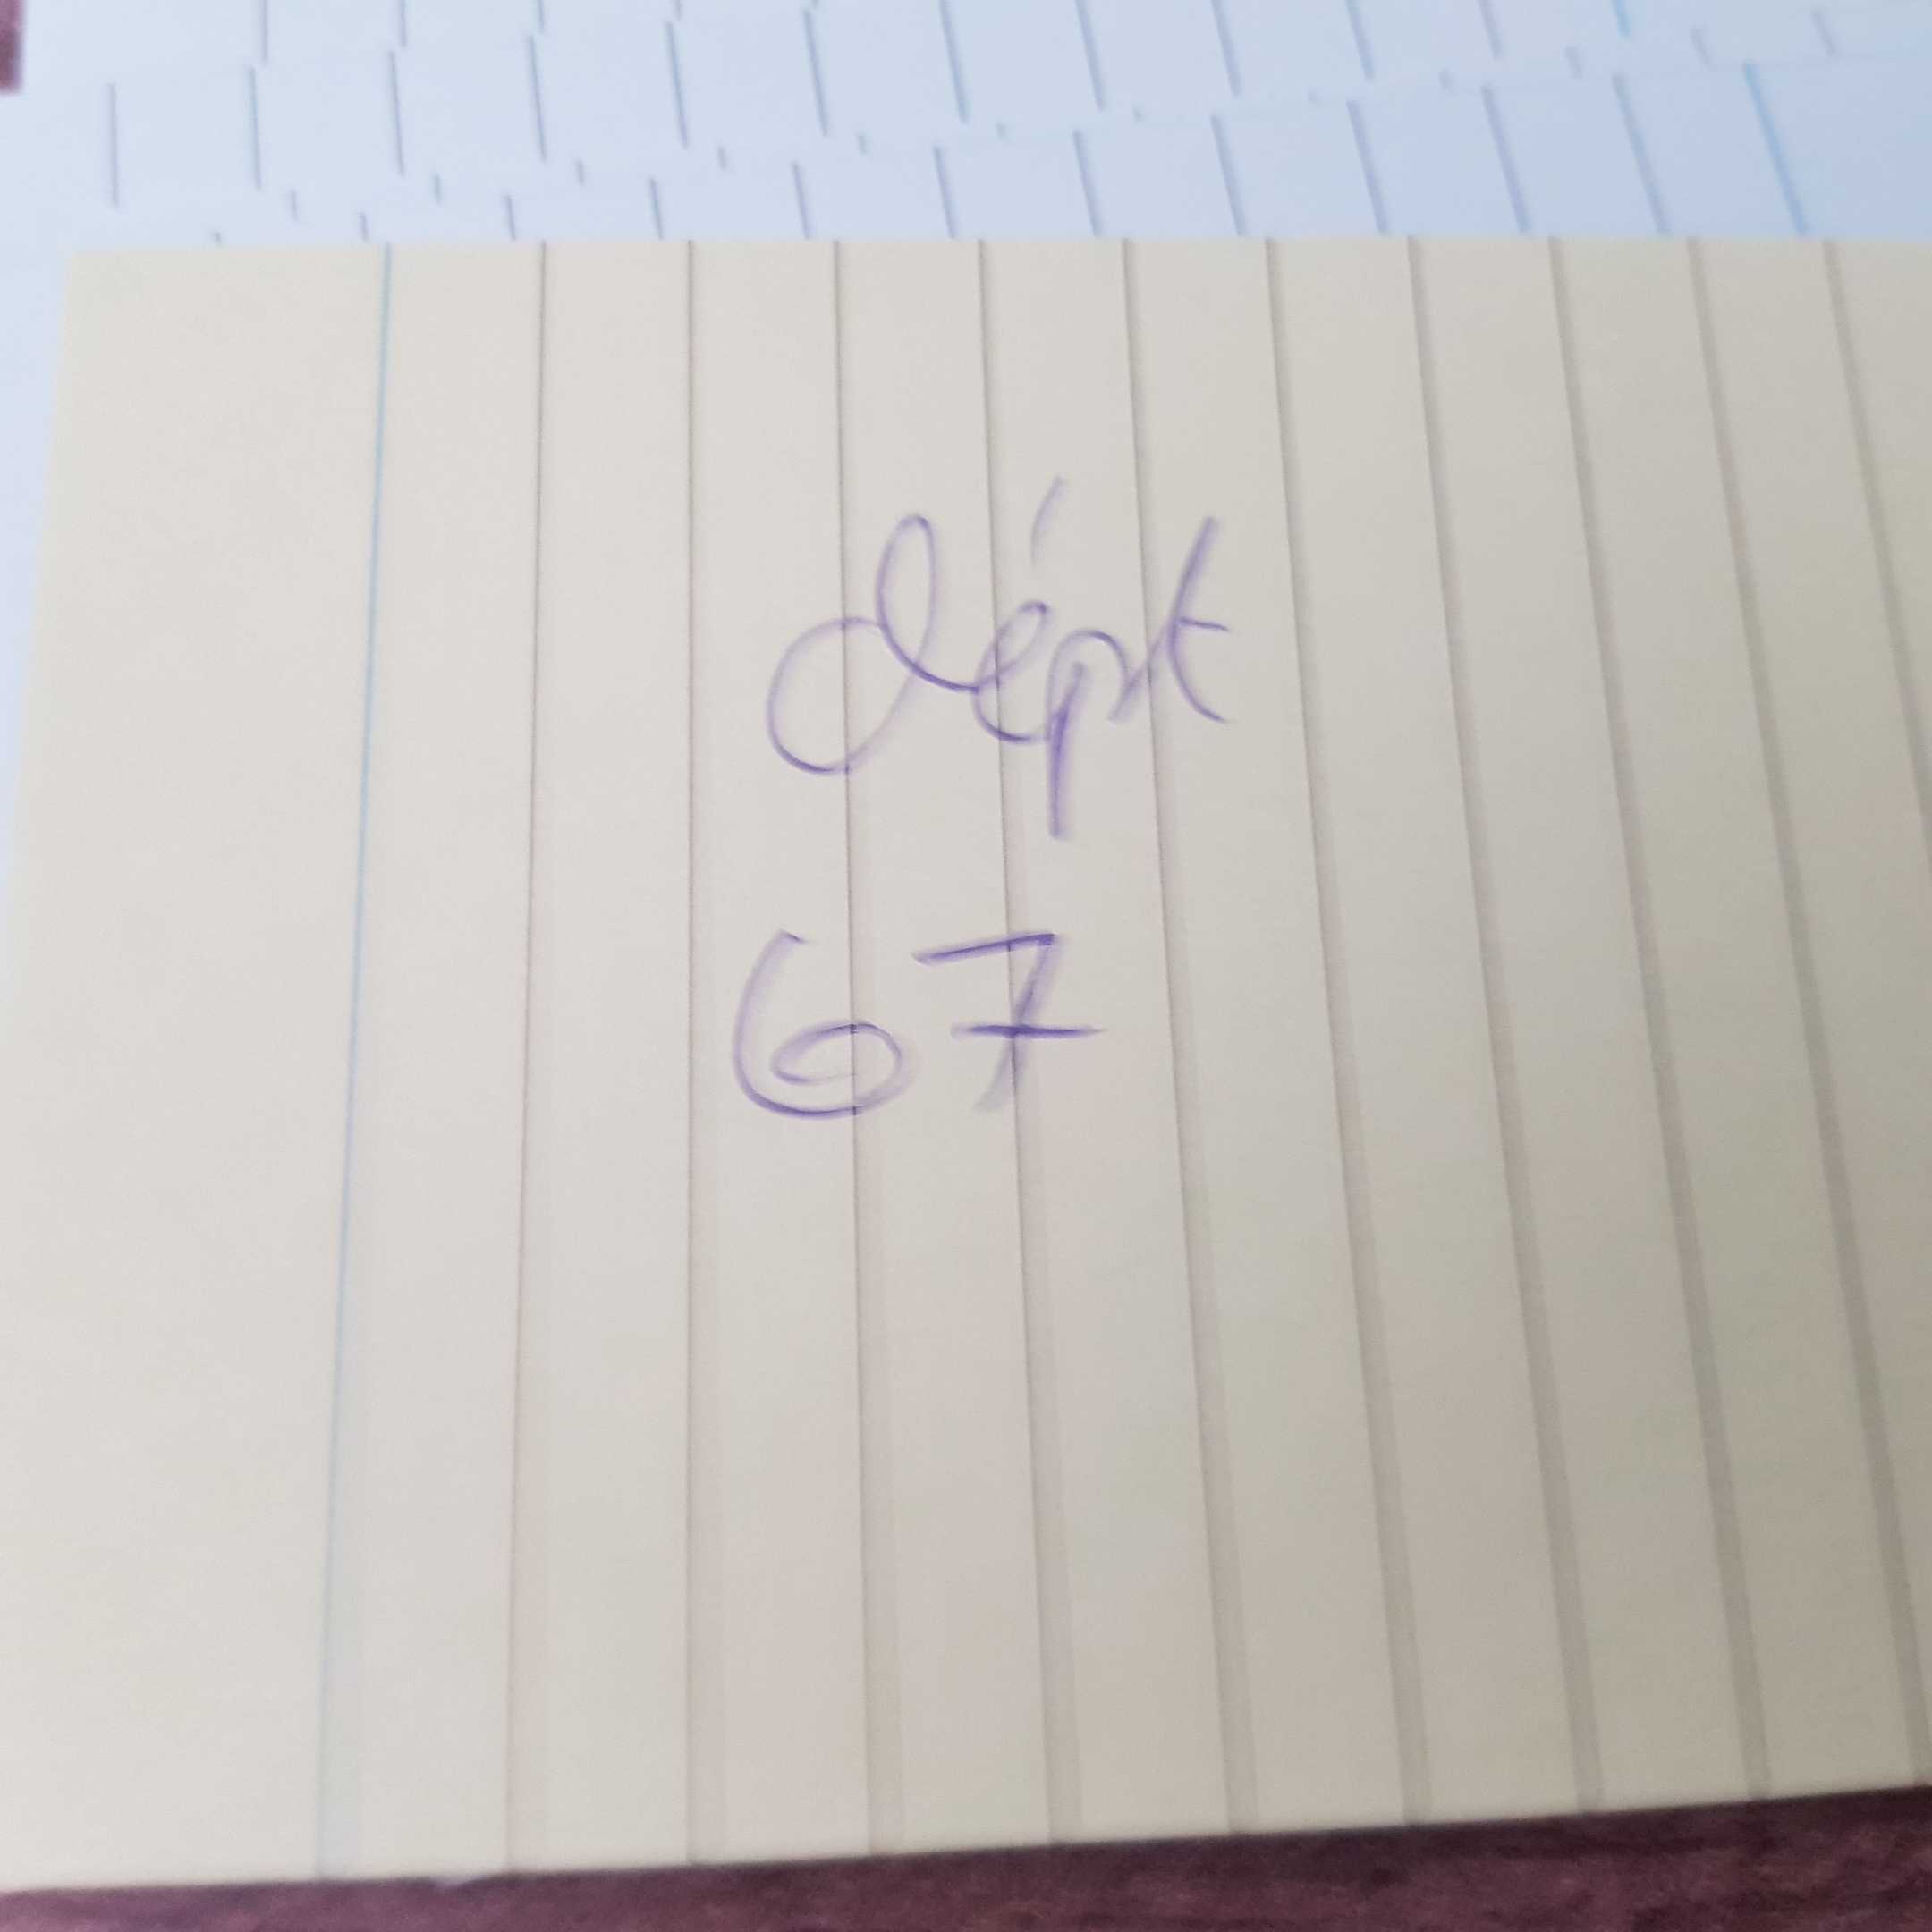 dépt
67